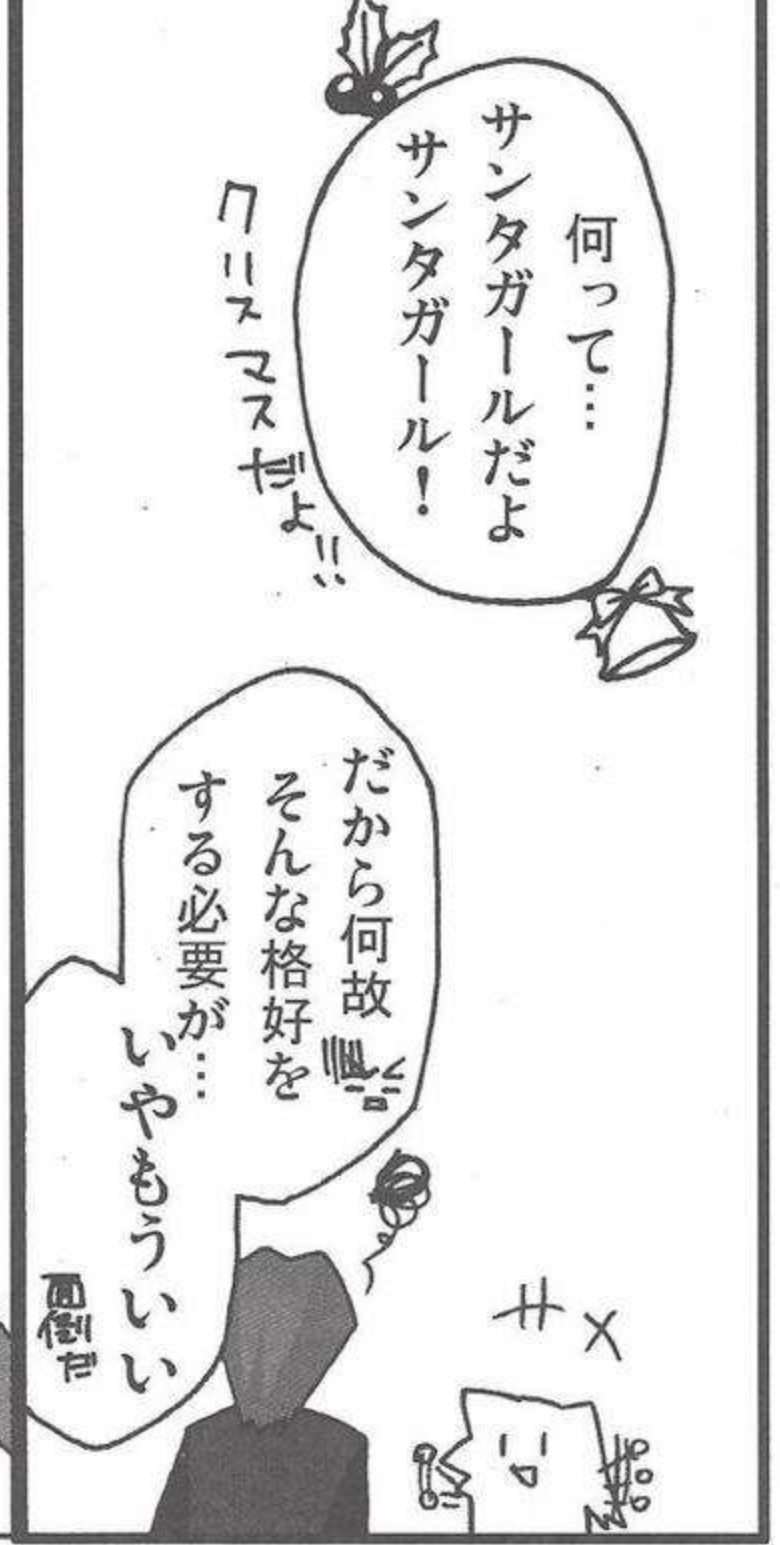 何って…
サンタガールだよ
サンタガール！
クリスマスだよ!!
だから何故
そんな格好を
する必要が…
いやもういい
面倒だ